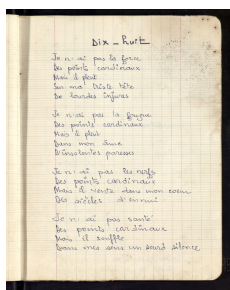 Dix - huit
Je n'ai pas la force
Des points cardinaux
Mais il pleut
Sur ma triste tête
De lourdes injures
Je n'ai pas la fougue
Des points cardinaux
Mais il pleut
Dans mon âme
D'insolentes paresses
Je n'ai pas les nerfs
Des points cardinaux
Mais il vente dans mon coeur
Des siècles d'ennui
Je n'ai pas santé
Des points cardinaux
Mais il souffle
Dans mes sens un sourd silence